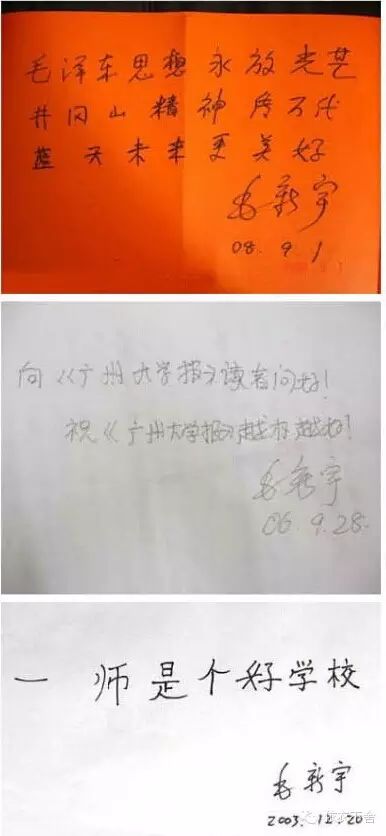 毛泽东思想永放光芒
井冈山精神传万代
蓝天未来更美好
毛新宇
08.9.1
向《广州大学报》读者问好!
祝《广州大学报》越办越好!
毛新宇
06.9.28.
一师是个好学校
毛新宇
2003.12.20